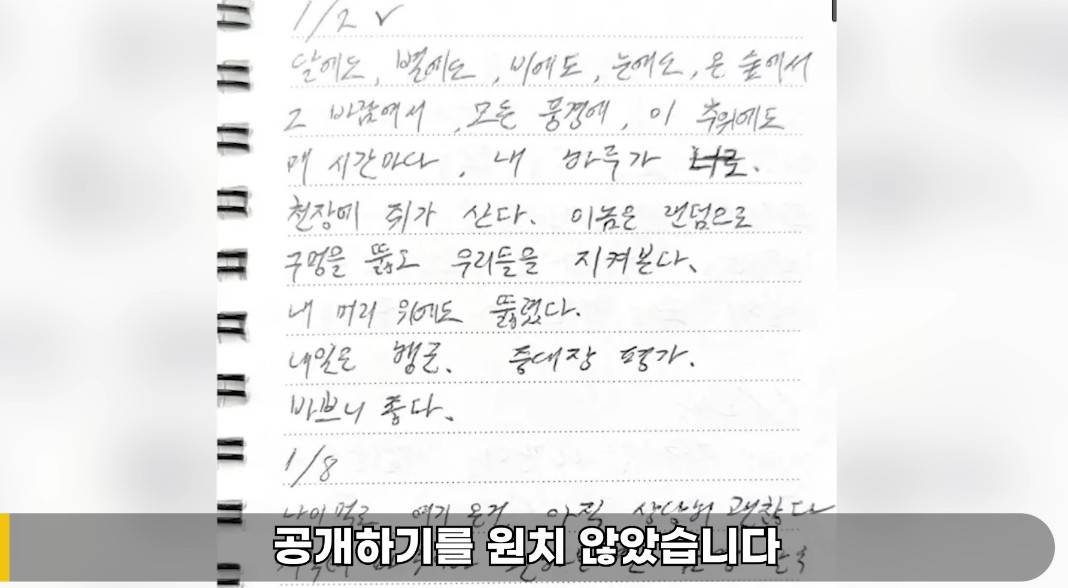 1/2 ✓
달에도, 별에도, 비에도, 눈에도, 온 숲에서
그 바람에서, 모든 풍경에, 이 추위에도
매 시간마다, 내 하루가 너로.
천장에 쥐가 산다. 이놈은 랜덤으로
구멍을 뚫고 우리들을 지켜본다.
내 머리 위에도 뚫렸다.
내일은 행군. 중대장 평가.
바쁘니 좋다.
1/8
나이 먹고 여기 온거 아직 상당히 괜찮다
공개하기를 원치 않았습니다